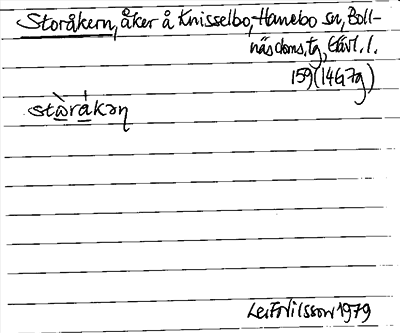 Storåkern, åker å Knisselbo, Hanebo sn, Boll-
näs doms. tg, Gävl. l.
159 (14G 7g)
stὼråkəɳ
Leif Nilsson 1979